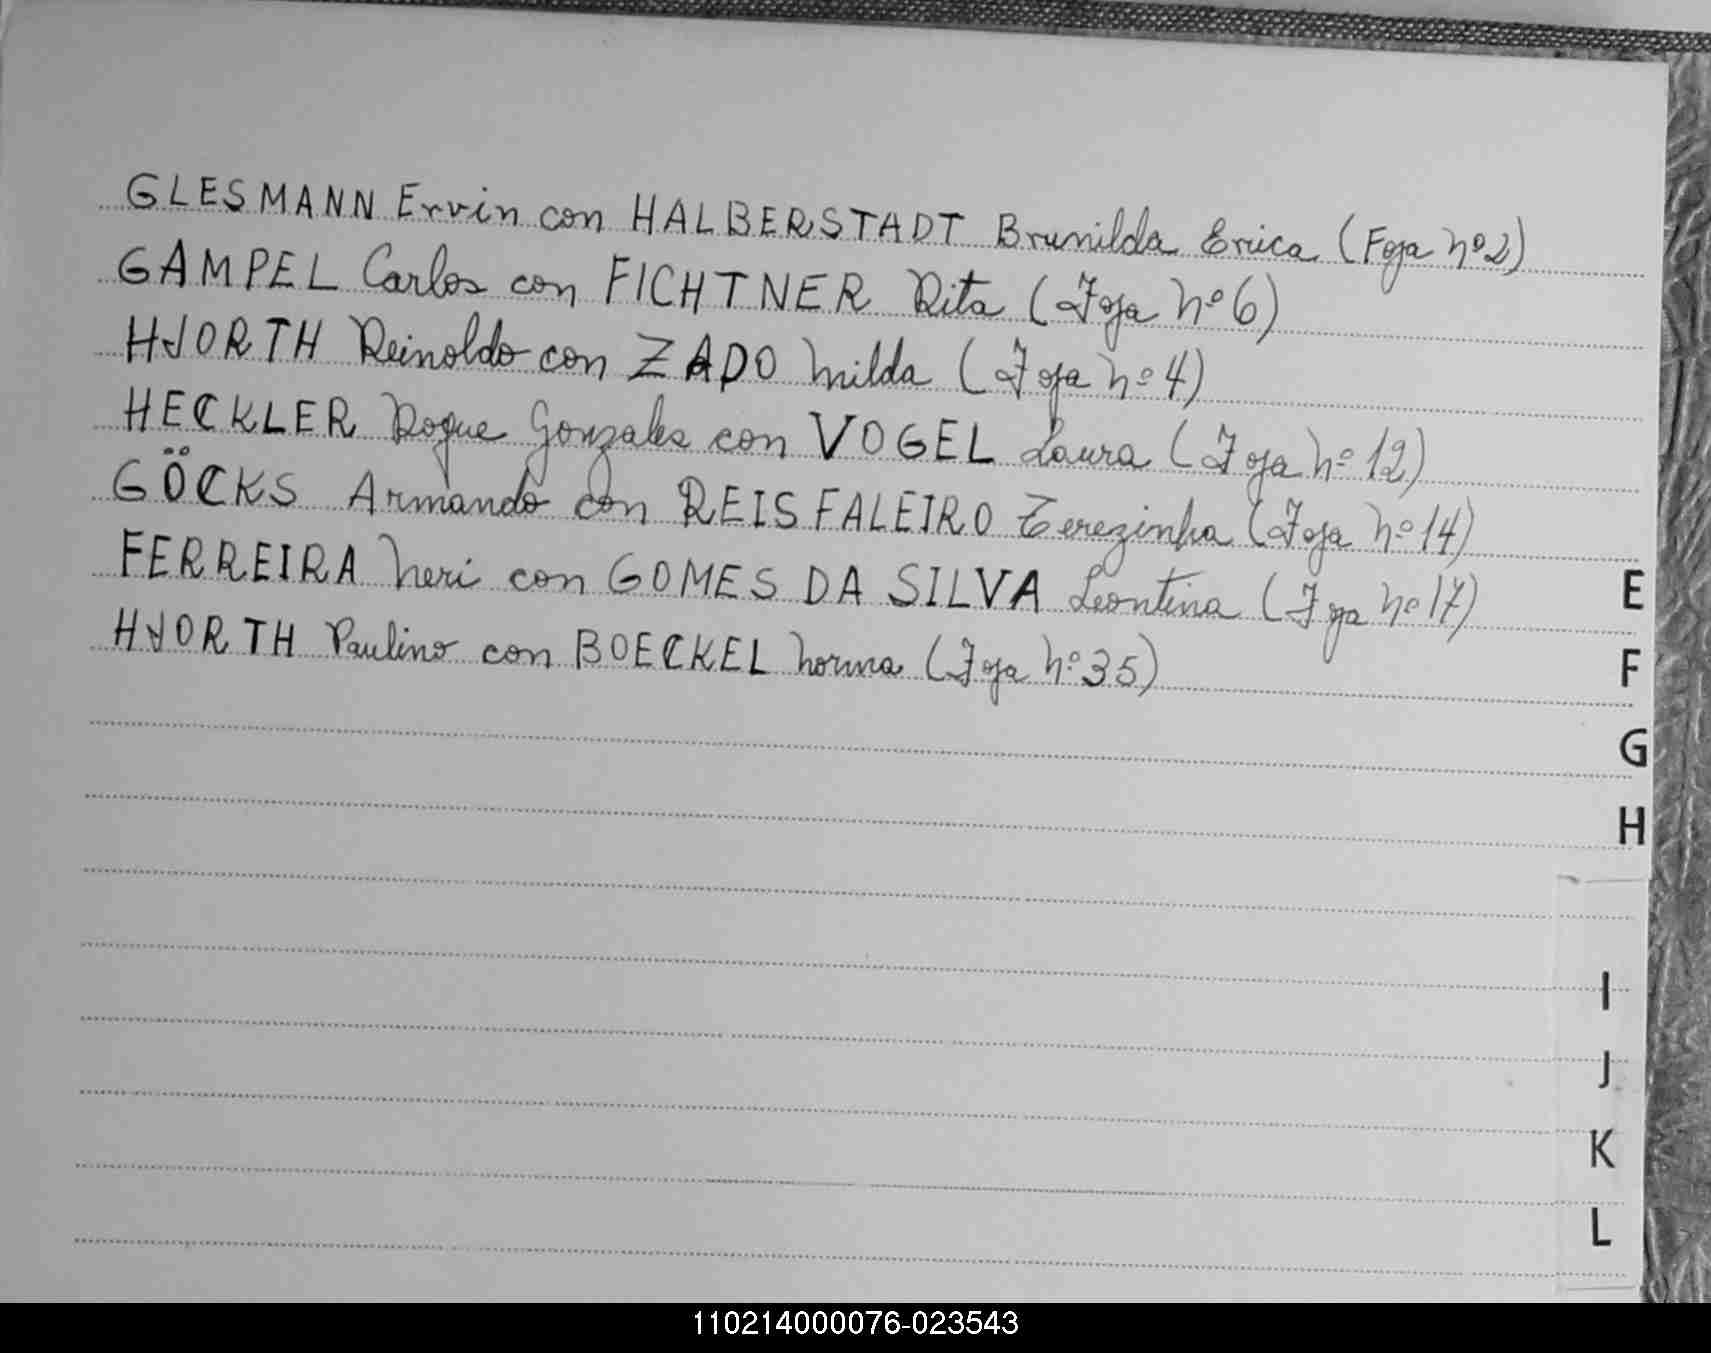 GLESMANN Ervin con HALBERSTADT Brunilda Erica (Foja nº 2)
GAMPEL Carlos con FICHTNER Rita (Foja nº 6)
HJORTH Reinoldo con ZADO Milda (Foja nº 4)
HECKLER Roque Gonzales con VOGEL Laura (Foja nº 12)
GÖCKS Armando con REIS FALEIRO Terezinha (Foja nº 14)
FERREIRA Neri con GOMES DA SILVA Leontina (Foja nº 17)
HJORTH Paulino con BOECKEL Norma (Foja nº 35)
E
F
G
H
I
J
K
L
110214000076-023543